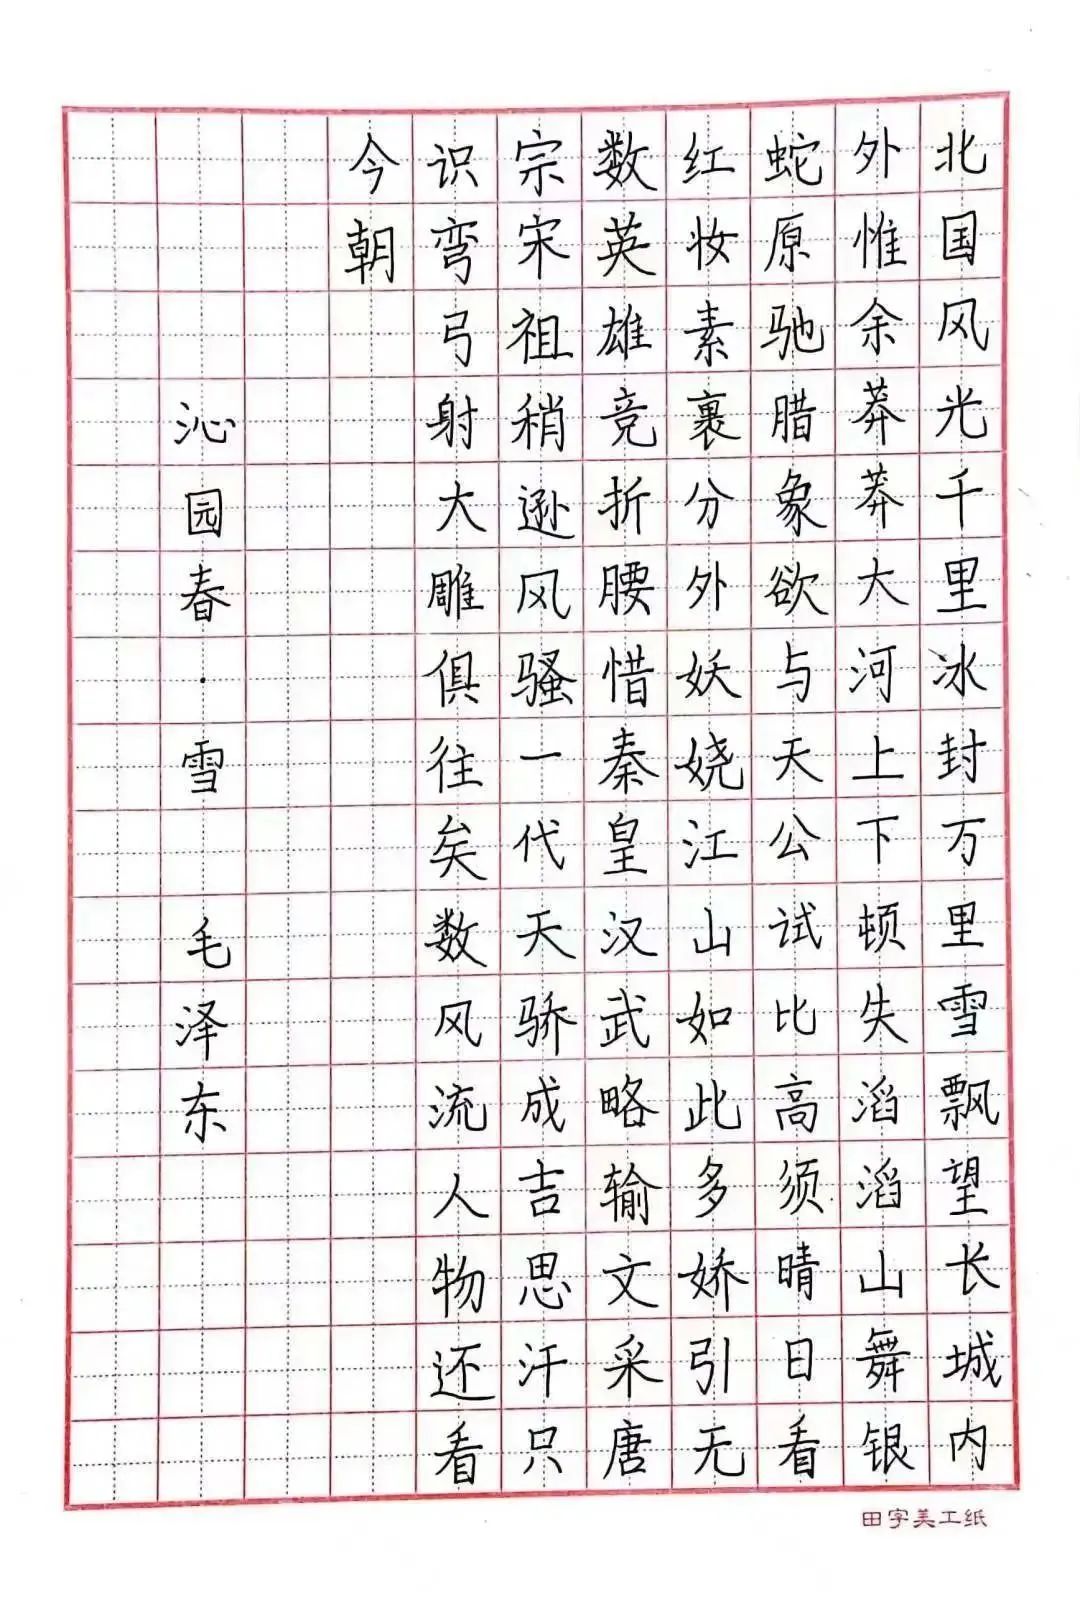 北国风光千里冰封万里雪飘望长城内
外惟余莽莽大河上下顿失滔滔山舞银
蛇原驰腊象欲与天公试比高须晴日看
红妆素裹分外妖娆江山如此多娇引无
数英雄竞折腰惜秦皇汉武略输文采唐
宗宋祖稍逊风骚一代天骄成吉思汗只
识弯弓射大雕俱往矣数风流人物还看
今朝
沁园春·雪 毛泽东
田字美工纸